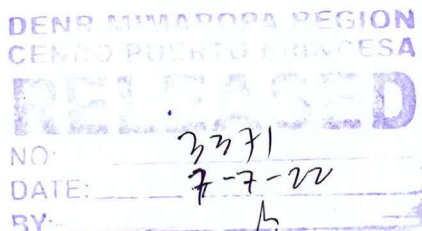 DENR MIMAROPA REGION
CENRO PUERTO PRINCESA
RELEASED
NO: 3371
DATE: 7-7-22
BY: